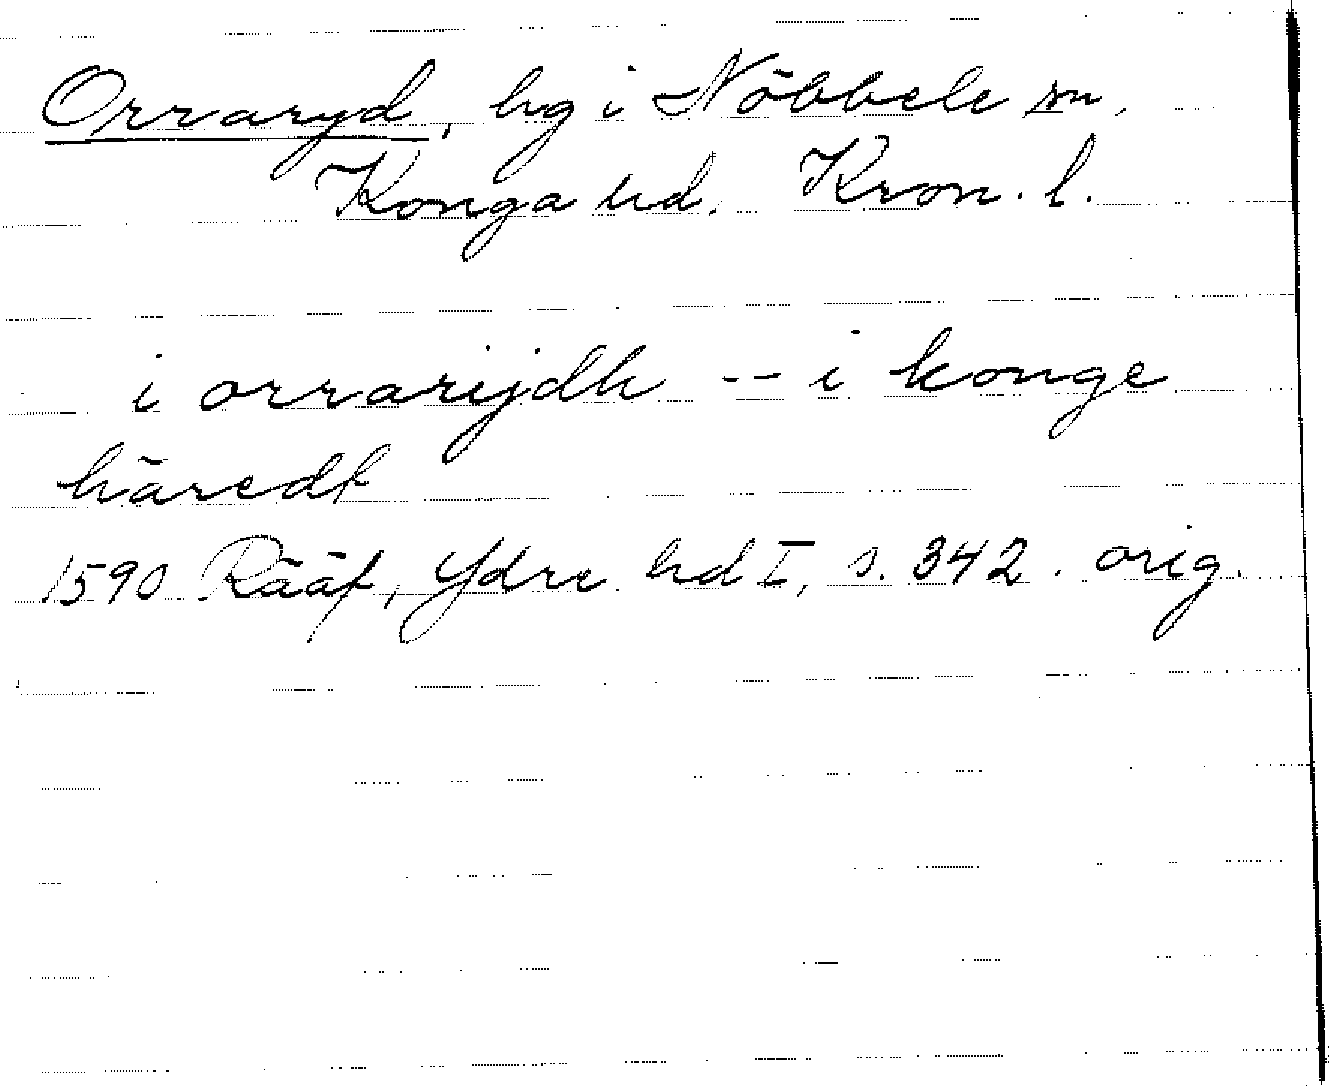 Orraryd, hg i Nöbbele sn,
Konga hd. Kron. l.
i orrarijdh -- i konge
häredt
1590 Rääf, Ydre hd I, s. 342. orig.